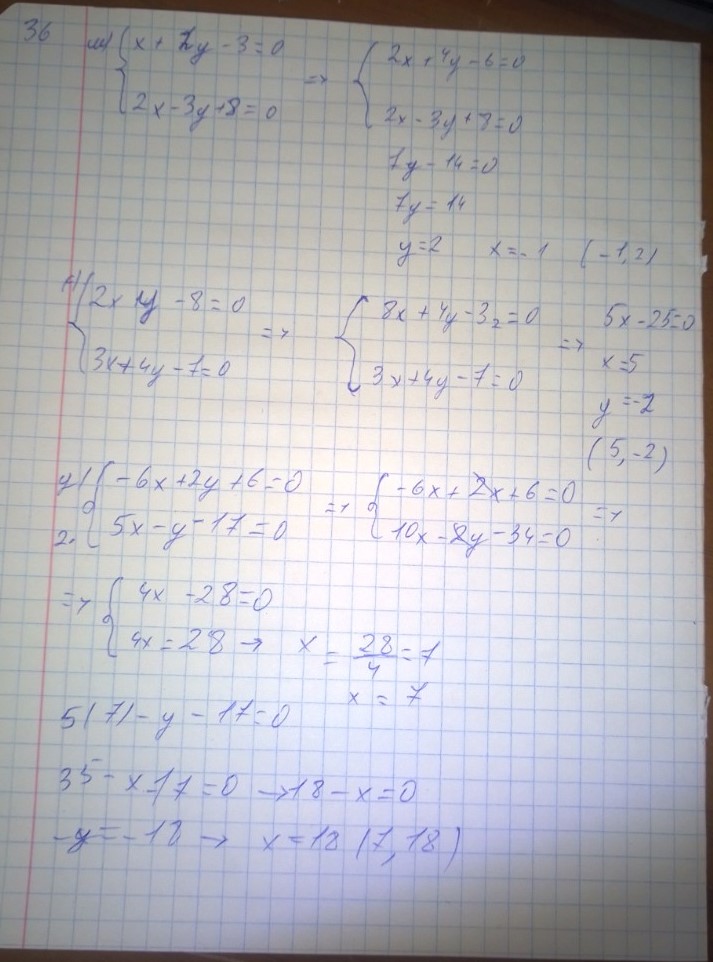 36
{ x + 2y - 3 = 0 => { 2x + 4y - 6 = 0
2x - 3y + 8 = 0 2x - 3y + 8 = 0
7y - 14 = 0
7y = 14
y = 2 x = -1 (-1, 2)
{ 2x + y - 8 = 0 => { 8x + 4y - 32 = 0 => 5x - 25 = 0
3x + 4y - 7 = 0 3x + 4y - 7 = 0 x = 5
y = -2
(5, -2)
{ -6x + 2y + 6 = 0 => { -6x + 2x + 6 = 0 =>
5x - y - 17 = 0 10x - 2y - 34 = 0
=> { 4x - 28 = 0
4x = 28 → x = 28/4 = 7
x = 7
5(7) - y - 17 = 0
35 - x - 17 = 0 → 18 - x = 0
-y = -18 → x = 18 (7, 18)